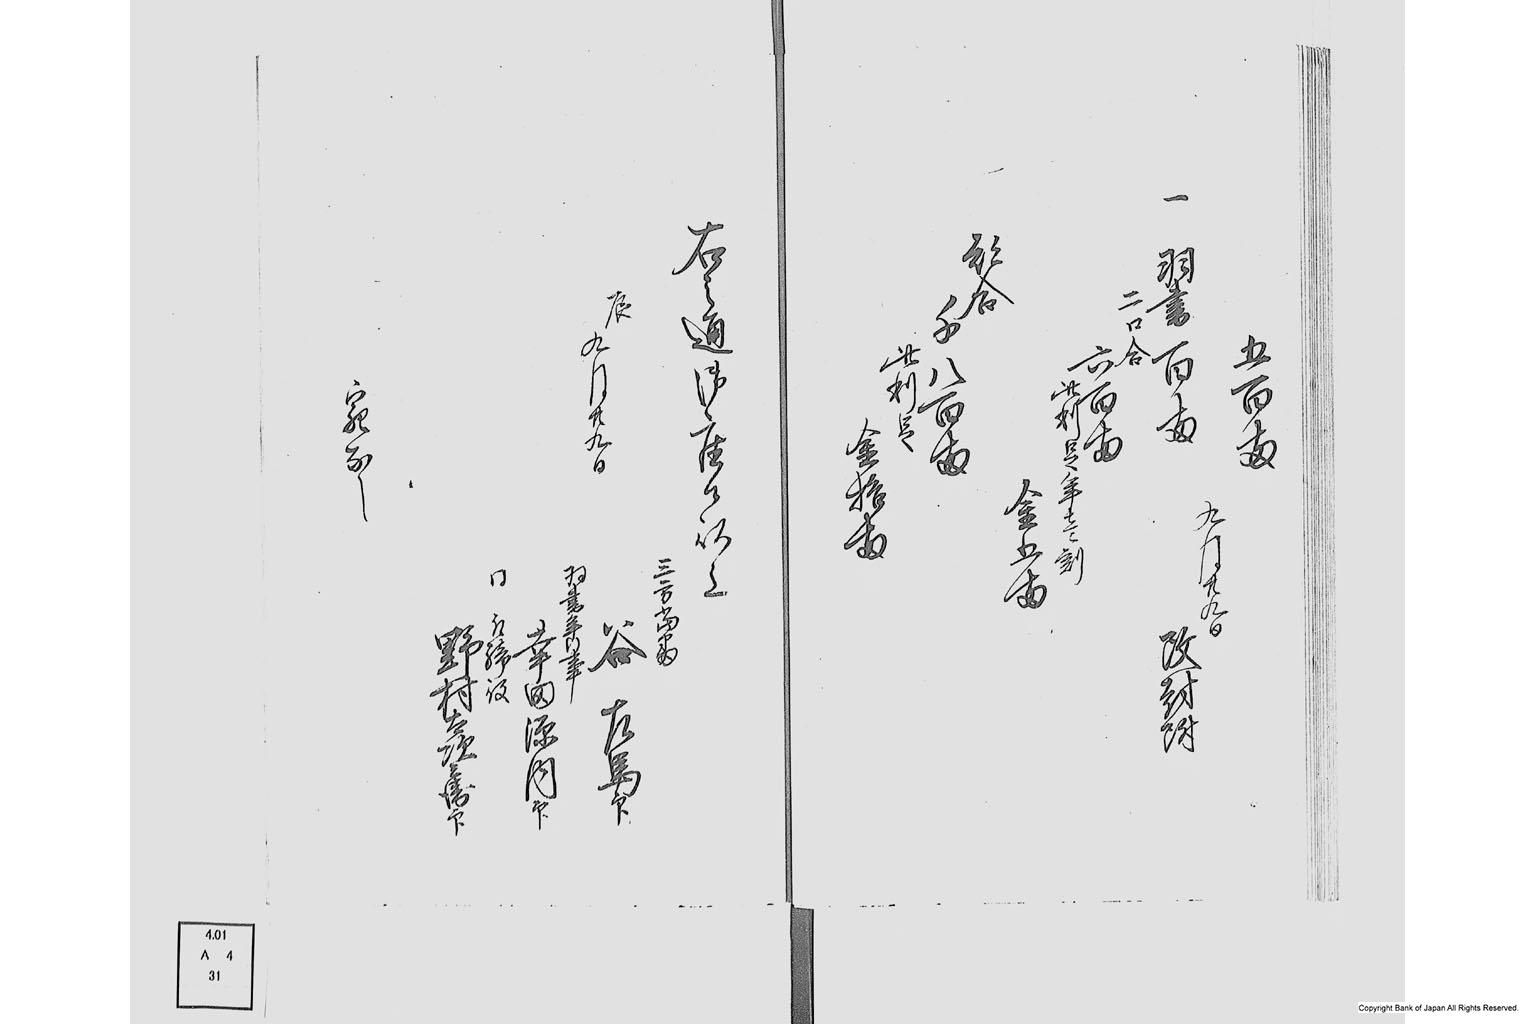 五百両
九月廿九日
改封附
一 羽書百両
二口合
六百両
此利足年壱割
金五両
惣合
千八百両
此利足
金拾両
右之通御座候以上
辰
九月廿九日
三方当番
谷 左馬印
羽書年行事
幸田源内印
同 取締役
野村
印
宛所
4.01
A 4
31
Copyright Bank of Japan All Rights Reserved.